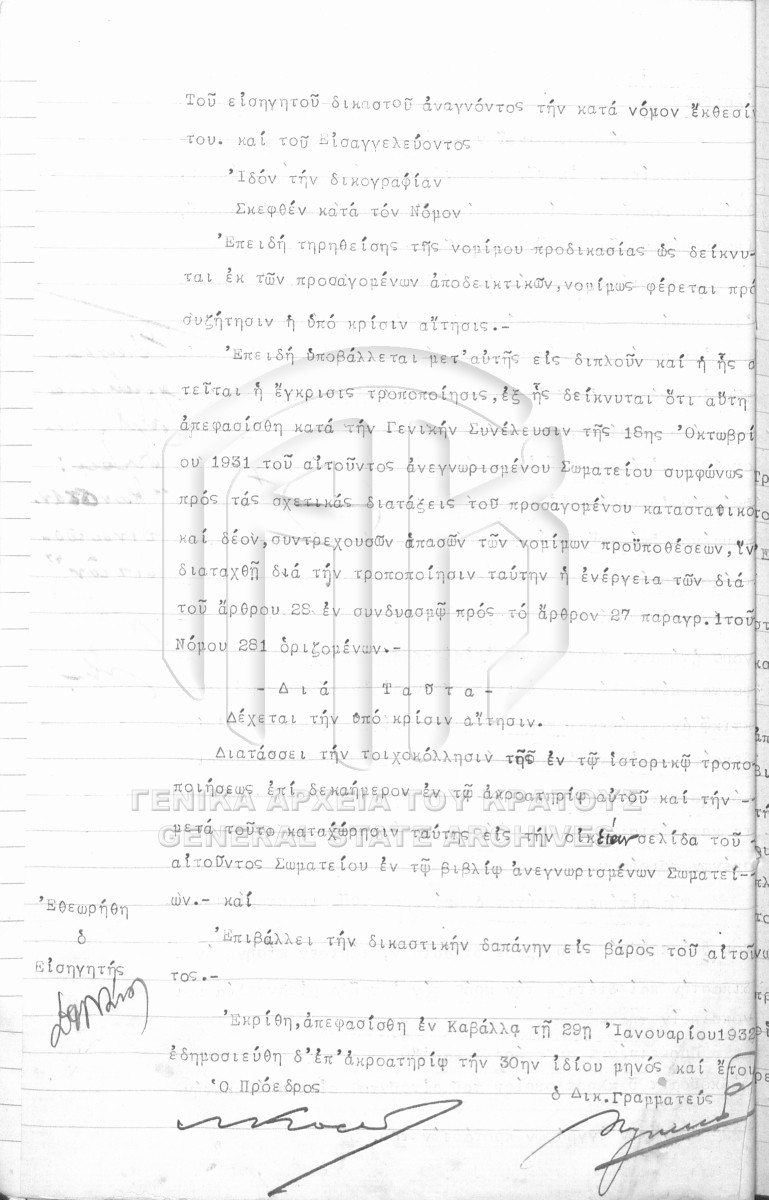 Τοῦ εἰσηγητοῦ δικαστοῦ ἀναγνόντος τήν κατά νόμον ἔκθεσίν
του. καί τοῦ Εἰσαγγελεύοντος
Ἰδόν τήν δικογραφίαν
Σκεφθέν κατά τόν Νόμον
Ἐπειδή τηρηθείσης τῆς νομίμου προδικασίας ὡς δείκνυ-
ται ἐκ τῶν προσαγομένων ἀποδεικτικῶν,νομίμως φέρεται πρό
συζήτησιν ἡ ὑπό κρίσιν αἴτησις.-
Ἐπειδή ὑποβάλλεται μετ'αὐτῆς εἰς διπλοῦν καί ἡ ἧς α
τεῖται ἡ ἔγκρισις τροποποίησις,ἐξ ἧς δείκνυται ὅτι αὕτη
ἀπεφασίσθη κατά τήν Γενικήν Συνέλευσιν τῆς 18ης Ὀκτωβρί
ου 1931 τοῦ αἰτοῦντος ἀνεγνωρισμένου Σωματείου συμφώνως
πρός τάς σχετικάς διατάξεις τοῦ προσαγομένου καταστατικο
καί δέον,συντρεχουσῶν ἁπασῶν τῶν νομίμων προϋποθέσεων,ἵν
διαταχθῇ διά τήν τροποποίησιν ταύτην ἡ ἐνέργεια τῶν διά
τοῦ ἄρθρου 28 ἐν συνδυασμῷ πρός τό ἄρθρον 27 παραγρ.1τοῦ
Νόμου 281 ὁριζομένων.-
- Διά Ταῦτα -
Δέχεται τήν ὑπό κρίσιν αἴτησιν.
Διατάσσει τήν τοιχοκόλλησιν τῆς ἐν τῷ ἱστορικῷ τροπο
ποιήσεως ἐπί δεκαήμερον ἐν τῷ ἀκροατηρίῳ αὐτοῦ καί τήν -
ΓΕΝΙΚΑ ΑΡΧΕΙΑ ΤΟΥ ΚΡΑΤΟΥΣ
μετά τοῦτο καταχώρησιν ταύτης εἰς τήν οἰκείαν σελίδα τοῦ
GENERAL STATE ARCHIVES
αἰτοῦντος Σωματείου ἐν τῷ βιβλίῳ ἀνεγνωρισμένων Σωματεί-
ων.- καί
Ἐπιβάλλει τήν δικαστικήν δαπάνην εἰς βάρος τοῦ αἰτοῦν
τος.-
Ἐθεωρήθη
ὁ
Εἰσηγητής
Ἐκρίθη,ἀπεφασίσθη ἐν Καβάλλᾳ τῇ 29ῃ Ἰανουαρίου1932
ἐδημοσιεύθη δ'ἐπ'ἀκροατηρίῳ τήν 30ην ἰδίου μηνός καί ἔτου
Ὁ Πρόεδρος
ὁ Δικ.Γραμματεύς